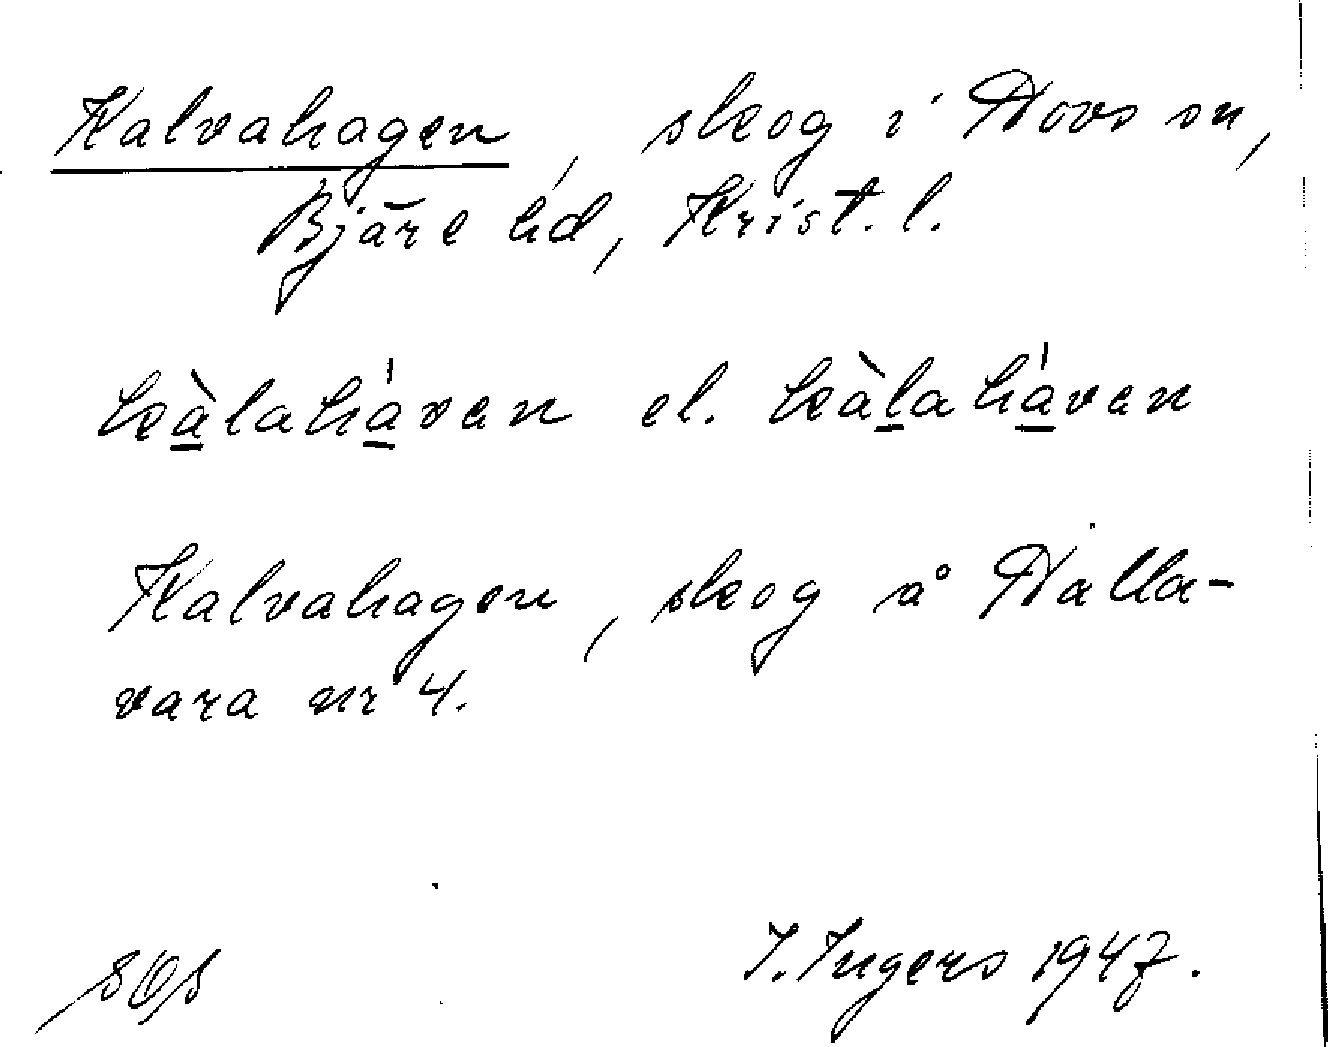 Kalvahagen, skog i Hovs sn,
Bjäre hd, Krist. l.
kàlaháven el. kàlaháven
Kalvahagen, skog å Halla-
vara nr 4.
I. Ingers 1947.